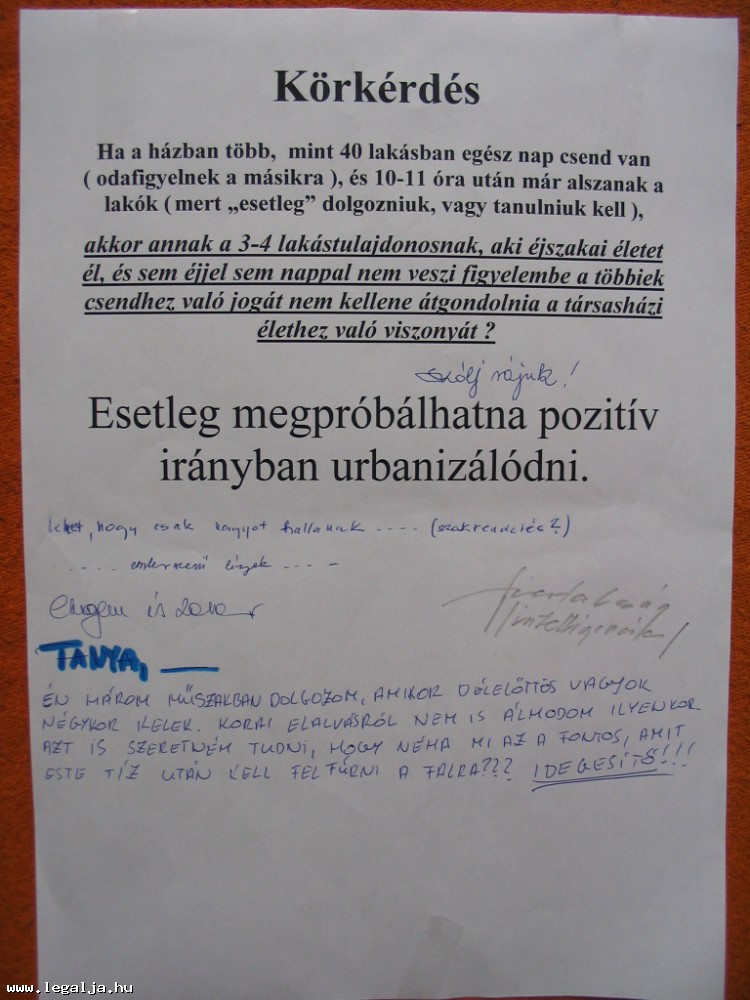 Körkérdés
Ha a házban több, mint 40 lakásban egész nap csend van
( odafigyelnek a másikra ), és 10-11 óra után már alszanak a
lakók ( mert „esetleg” dolgozniuk, vagy tanulniuk kell ),
akkor annak a 3-4 lakástulajdonosnak, aki éjszakai életet
él, és sem éjjel sem nappal nem veszi figyelembe a többiek
csendhez való jogát nem kellene átgondolnia a társasházi
élethez való viszonyát ?
szólj rájuk!
Esetleg megpróbálhatna pozitív
irányban urbanizálódni.
lehet, hogy csak nagyot hallanak .... (szakrendelés?)
.... ....
Engem is zavar
intelligencia!
TANYA, __
ÉN MÁROM MŰSZAKBAN DOLGOZOM, AMIKOR DÉLELŐTTÖS VAGYOK
NÉGYKOR KELEK. KORAI ELALVÁSRÓL NEM IS ÁLMODOM ILYENKOR
AZT IS SZERETNÉM TUDNI, HOGY NÉHA MI AZ A FONTOS, AMIT
ESTE TÍZ UTÁN KELL FELFÚRNI A FALRA??? IDEGESÍTŐ!!!
www.legalja.hu